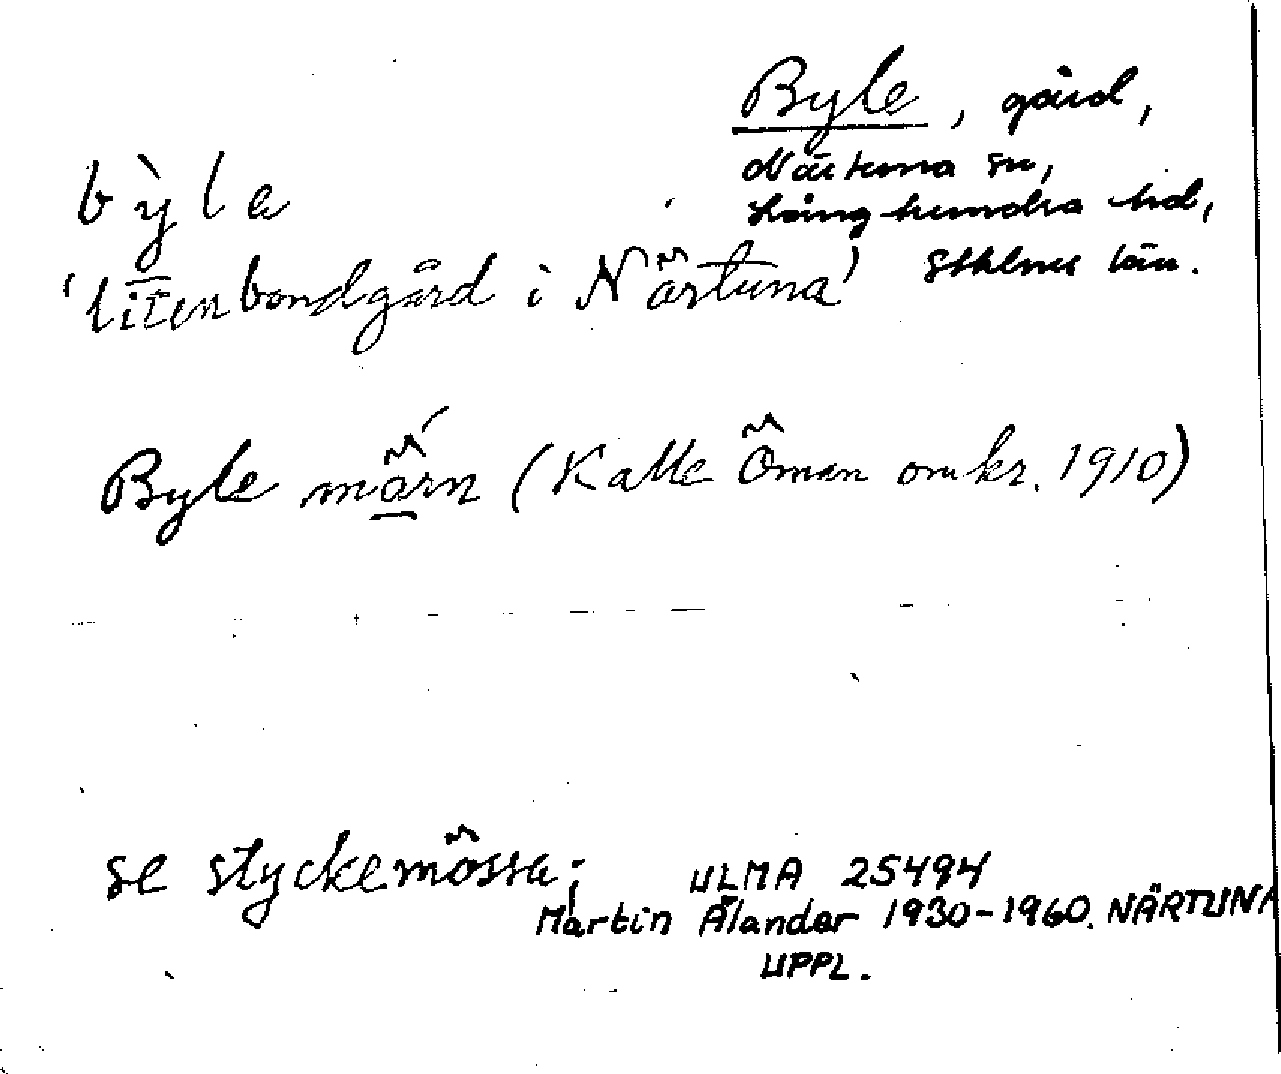 Byle, gård,
Närtuna sn,
Långhundra hd,
Sthlms län.
bỳle
'liten bondgård i Närtuna'
Byle mörn (Kalle Öman omkr. 1910)
se styckemössa; ULMA 25494
Martin Ålander 1930-1960. NÄRTUNA
UPPL.